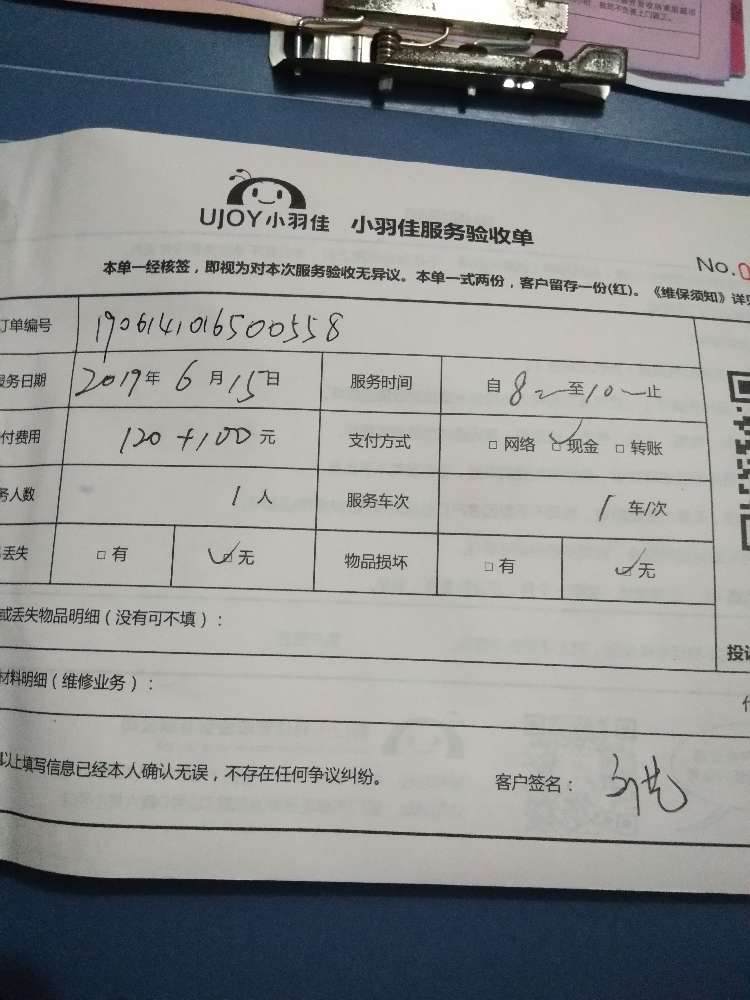 UJOY小羽佳 小羽佳服务验收单
No.0
本单一经核签，即视为对本次服务验收无异议。本单一式两份，客户留存一份(红)。《维保须知》详见
订单编号 1906141016500558
服务日期 2019年6月15日 服务时间 自8:00至10:00止
付费用 120+100元 支付方式 □网络 ☑现金 □转账
务人数 1人 服务车次 1车/次
丢失 □有 ☑无 物品损坏 □有 ☑无
或丢失物品明细（没有可不填）：
投诉
材料明细（维修业务）：
以上填写信息已经本人确认无误，不存在任何争议纠纷。 客户签名：